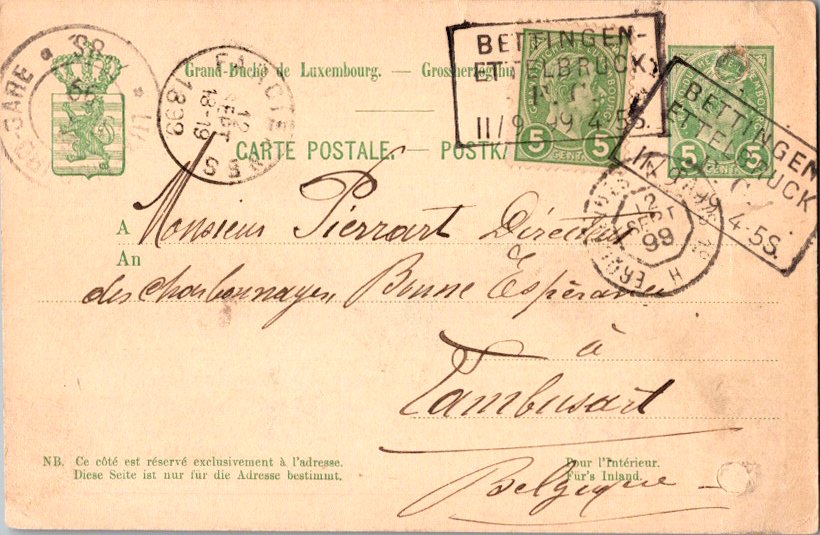 Grand-Duché de Luxembourg. — Grossherzogthu
CARTE POSTALE. — POSTK
BETTINGEN-
ETTELBRUCK
II/9 99 4-5S.
5 5
CENT.
BETTINGEN
ETTELBRUCK
99 4-5S.
5 5
CENT.
GARE
99
12
SEPT
18-19
1899
12
SEPT
99
H
A Monsieur Pierrart Directeur
An
des Charbonnages Bonne Espérance
à
Lambusart
Belgique
NB. Ce côté est réservé exclusivement à l'adresse.
Diese Seite ist nur für die Adresse bestimmt.
Pour l'Intérieur.
Für's Inland.